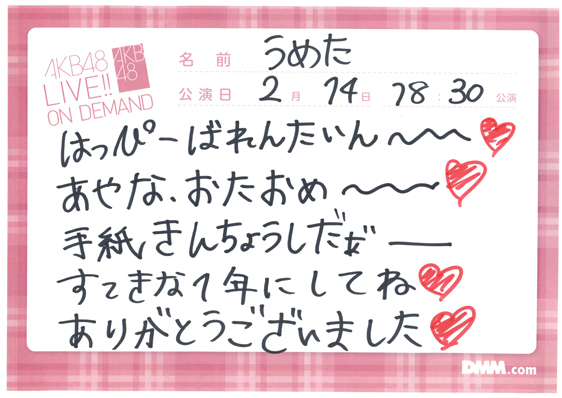 AKB48
LIVE!!
ON DEMAND
AKB
48
名前 うめた
公演日 2月 14日 18:30 公演
はっぴーばれんたいん〜〜〜
あやな、おたおめ〜〜〜
手紙、きんちょうしだぁ゛ー
すてきな1年にしてね
ありがとうございました
DMM.com